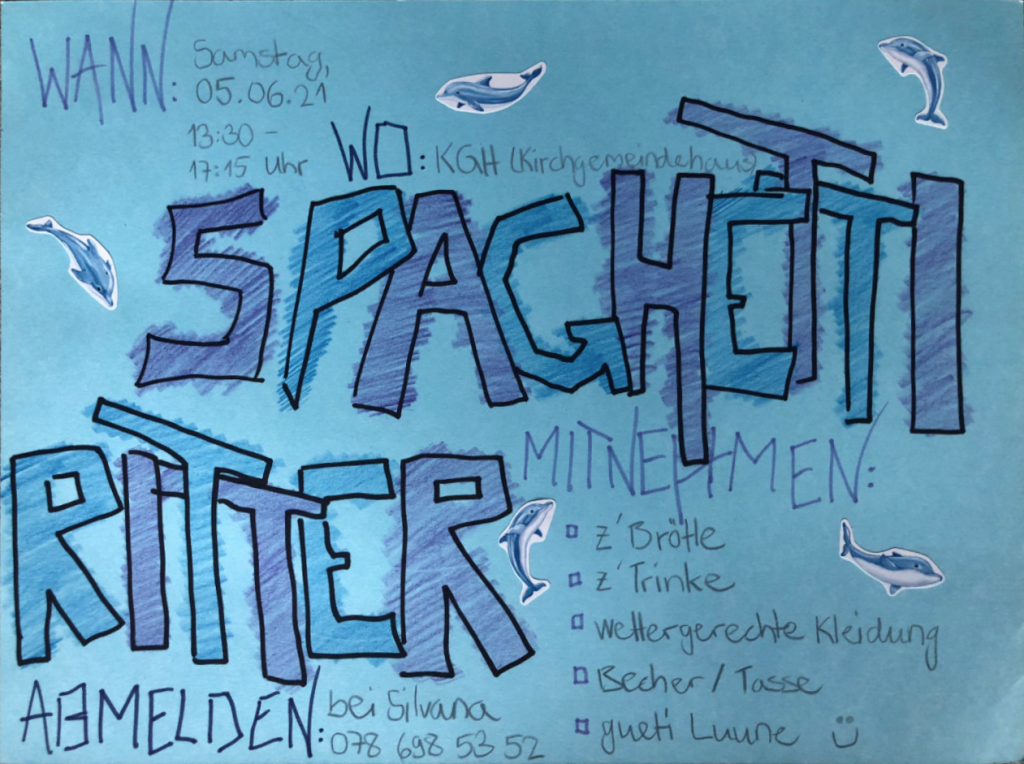 WANN: Samstag,
05.06.21
13:30 -
17:15 Uhr
WO: KGH (Kirchgemeindehaus)
SPAGHETTI
RITTER
MITNEHMEN:
z'Brötle
z'Trinke
wettergerechte Kleidung
Becher / Tasse
gueti Luune
ABMELDEN: bei Silvana
078 698 53 52